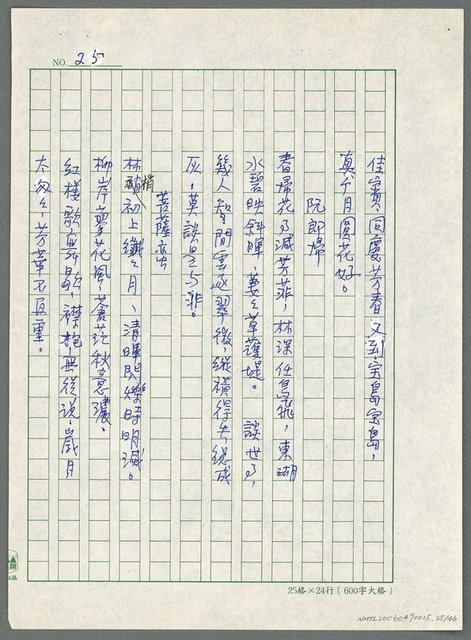 NO. 25
佳賓，同慶芳春又到，宝島宝島，
真个月圓花好。
阮郎歸
春歸花事減芳菲，林深任鳥飛，東湖
水碧映斜暉，萋萋草護堤。 談世事，
幾人智，閒雲逐翠微，縱橫得失總成
灰，莫談是与非。
菩薩蛮
林梢初上纖纖月，清暉閃爍時明滅。
柳岸蓼花風，蒼茫秋意濃。
紅樓歌舞歇，襟抱無從說，歲月
太匆匆，芳華不再重。
25格×24行(600字大格)
NMTL20060470015. 25/46